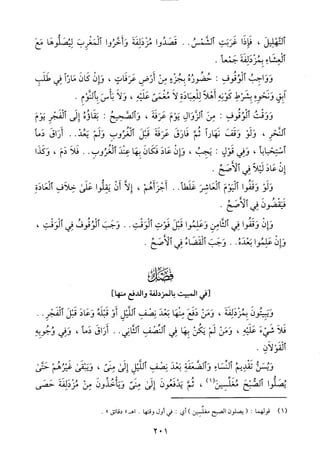 التَّهْلِيلَ ، فَإِذَا غَرَبَتِ الشَّمْسُ . . قَصَدُوا مُزْدَلِفَةَ وَأَخَّرُوا الْمَغْرِبَ لِيُصَلُّوهَا مَعَ
الْعِشَاءِ بِمُزْدَلِفَةَ جَمْعاً .
وَوَاجِبُ الْوُقُوفِ : حُضُورُهُ بِجُزْءٍ مِنْ أَرْضِ عَرَفَاتٍ ، وَإِنْ كَانَ مَارّاً فِي طَلَبِ
آبِقٍ وَنَحْوِهِ بِشَرْطِ كَوْنِهِ أَهْلاً لِلْعِبَادَةِ لاَ مُغْمَىً عَلَيْهِ ، وَلاَ بَأْسَ بِالنَّوْمِ .
وَوَقْتُ الْوُقُوفِ : مِنَ الزَّوَالِ يَوْمَ عَرَفَةَ ، وَالصَّحِيحُ : بَقَاؤُهُ إِلَى الْفَجْرِ يَوْمَ
النَّحْرِ ، وَلَوْ وَقَفَ نَهَاراً ثُمَّ فَارَقَ عَرَفَةَ قَبْلَ الْغُرُوبِ وَلَمْ يَعُدْ . . أَرَاقَ دَماً
اسْتِحْبَاباً ، وَفِي قَوْلٍ : يَجِبُ ، وَإِنْ عَادَ فَكَانَ بِهَا عِنْدَ الْغُرُوبِ . . فَلاَ دَمَ ، وَكَذَا
إِنْ عَادَ لَيْلاً فِي الأَصَحِّ .
وَلَوْ وَقَفُوا الْيَوْمَ الْعَاشِرَ غَلَطاً . . أَجْزَأَهُمْ ، إِلاَّ أَنْ يَقِلُّوا عَلَى خِلاَفِ الْعَادَةِ
فَيَقْضُونَ فِي الأَصَحِّ .
وَإِنْ وَقَفُوا فِي الثَّامِنِ وَعَلِمُوا قَبْلَ فَوْتِ الْوَقْتِ . . وَجَبَ الْوُقُوفُ فِي الْوَقْتِ ،
وَإِنْ عَلِمُوا بَعْدَهُ . . وَجَبَ الْقَضَاءُ فِي الأَصَحِّ .
فَصْلٌ
[في المبيت بالمزدلفة والدفع منها]
وَيَبِيتُونَ بِمُزْدَلِفَةَ ، وَمَنْ دَفَعَ مِنْهَا بَعْدَ نِصْفِ اللَّيْلِ أَوْ قَبْلَهُ وَعَادَ قَبْلَ الْفَجْرِ . .
فَلاَ شَيْءَ عَلَيْهِ ، وَمَنْ لَمْ يَكُنْ بِهَا فِي النِّصْفِ الثَّانِي . . أَرَاقَ دَماً ، وَفِي وُجُوبِهِ
الْقَوْلاَنِ .
وَيُسَنُّ تَقْدِيمُ النِّسَاءِ وَالضَّعَفَةِ بَعْدَ نِصْفِ اللَّيْلِ إِلَى مِنَىً ، وَيَبْقَى غَيْرُهُمْ حَتَّى
يُصَلُّوا الصُّبْحَ مُغَلِّسِينَ(١) ، ثُمَّ يَدْفَعُونَ إِلَى مِنَىً وَيَأْخُذُونَ مِنْ مُزْدَلِفَةَ حَصَى
(١) قولهما : ( يصلون الصبح مغلسين ) أي : في أول وقتها . اهـ « دقائق » .
٢٠١